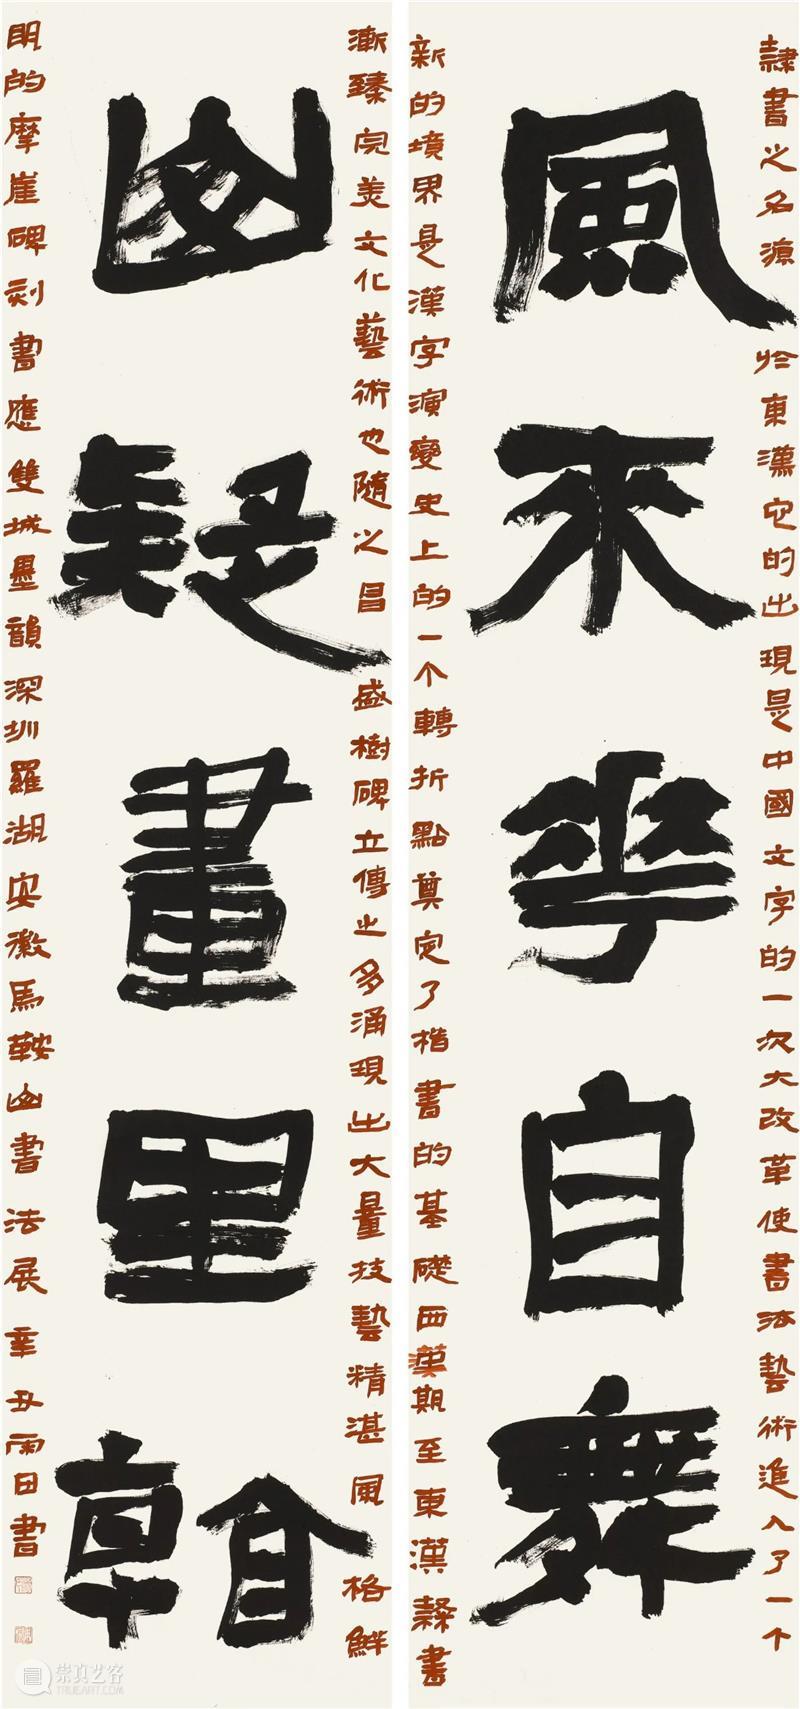 隸書之名源於東漢它的出現是中國文字的一次大改革使書法藝術進入了一个
風來華自舞
新的境界是漢字演變史上的一个轉折點奠定了楷書的基礎西漢期至東漢隸書
漸臻完美文化藝術也隨之昌盛樹碑立傳之多涌現出大量技藝精湛風格鮮
山疑畫里
明的摩崖碑刻書應雙城墨韻深圳羅湖安徽馬鞍山書法展辛丑雨田書
崇真艺客
TRUEART.COM